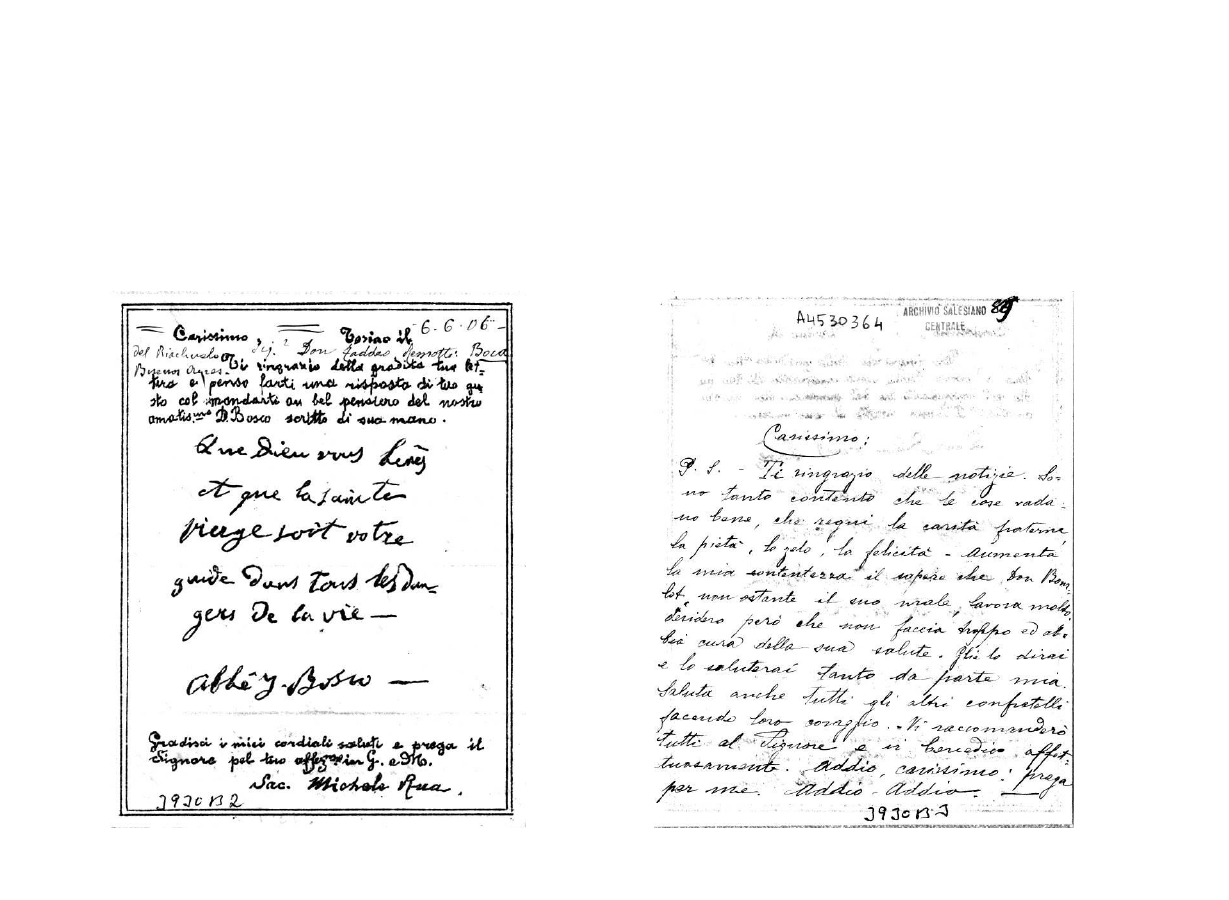 Carissimo, Torino il 6-6-06-
del Riachuelo Sig.r Don Taddeo Remotti: Boca
Buenos Ayres. Ti ringrazio della gradita tua let-
tera e penso farti una risposta di tuo gu
sto col mandarti un bel pensiero del nostro
amatis.mo D. Bosco scritto di sua mano.
Que Dieu vous bénis
et que la sainte
vierge soit votre
guide dans tous les dan-
gers de la vie —
abbé J. Bosco —
Gradisci i miei cordiali saluti e prega il
Signore pel tuo affez.mo in G. e M.
Sac. Michele Rua.
3930B2
A4530364
ARCHIVIO SALESIANO
CENTRALE
Carissimo:
P. S. - Ti ringrazio delle notizie. So-
no tanto contento che le cose vada-
no bene, che regni la carità fraterna,
la pietà, lo zelo, la felicità - Aumenta
la mia contentezza il sapere che Don
non ostante il suo male, lavora molto.
Desidero però che non faccia troppo ed ab-
bia cura della sua salute. Glie lo dirai
e lo saluterai tanto da parte mia.
Saluta anche tutti gli altri confratelli
facendo loro coraggio. Vi raccomanderò
tutti al Signore e vi benedico affet-
tuosamente. Addio, carissimo: prega
per me. Addio - Addio.
3930B3